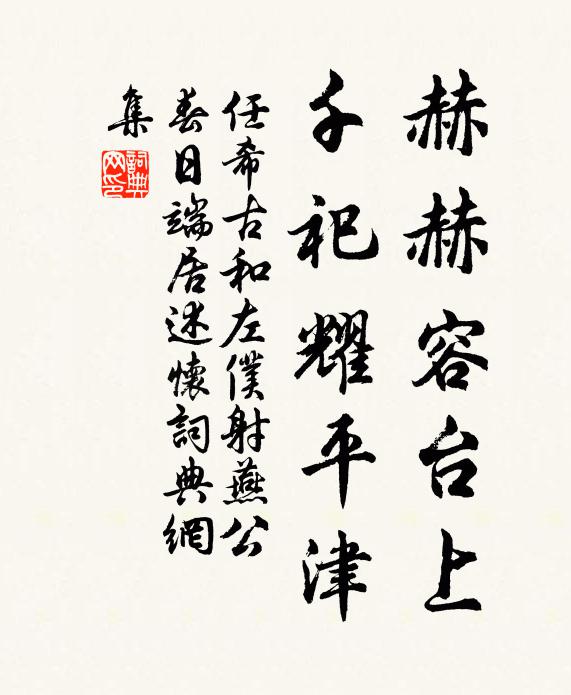 赫赫容台上
千祀耀平津
任希古和左僕射燕公
春日端居述懷詞典網
集
詞典
网印